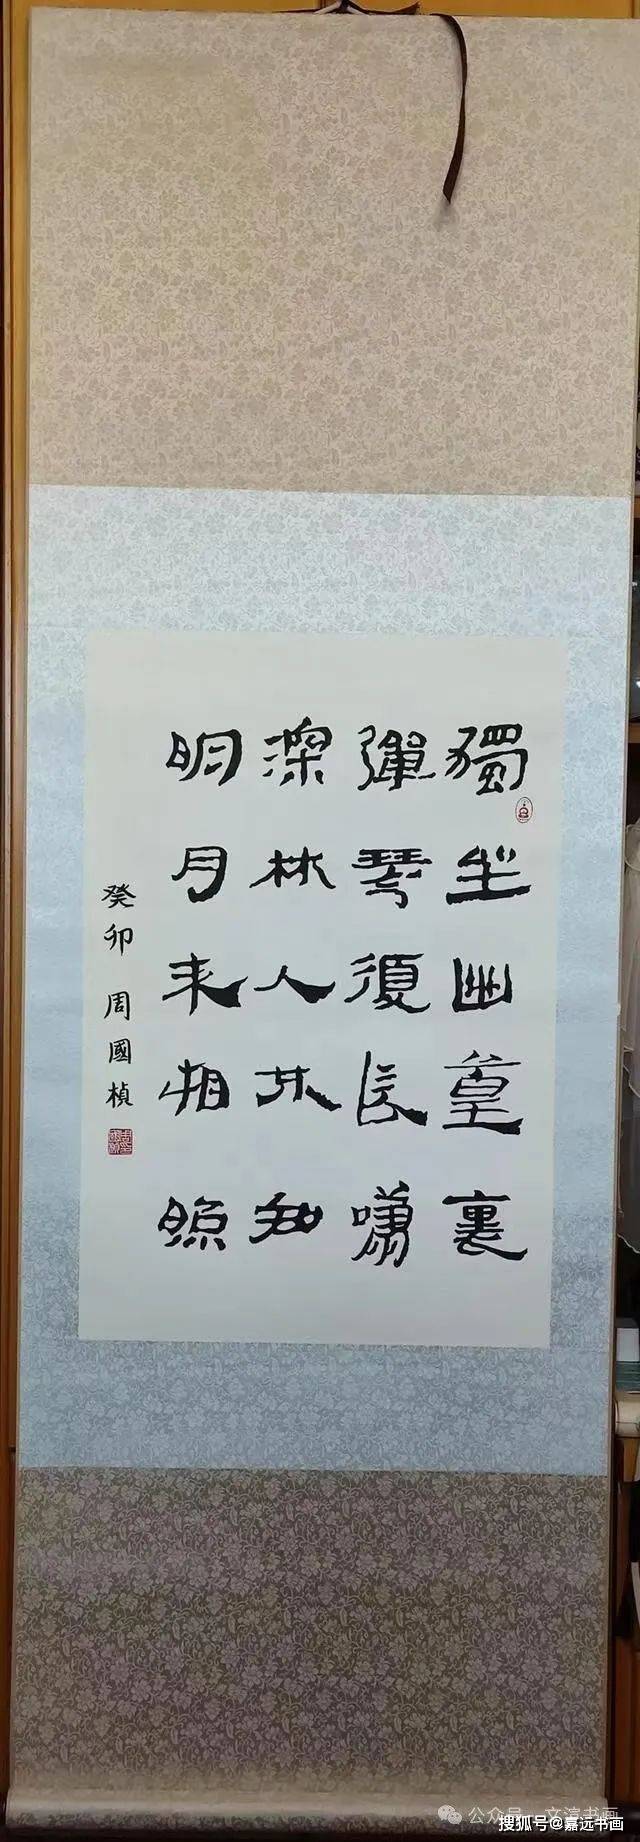 獨坐幽篁裏
彈琴復長嘯
深林人不知
明月來相照
癸卯 周國楨
公众号
搜狐号@嘉远书画